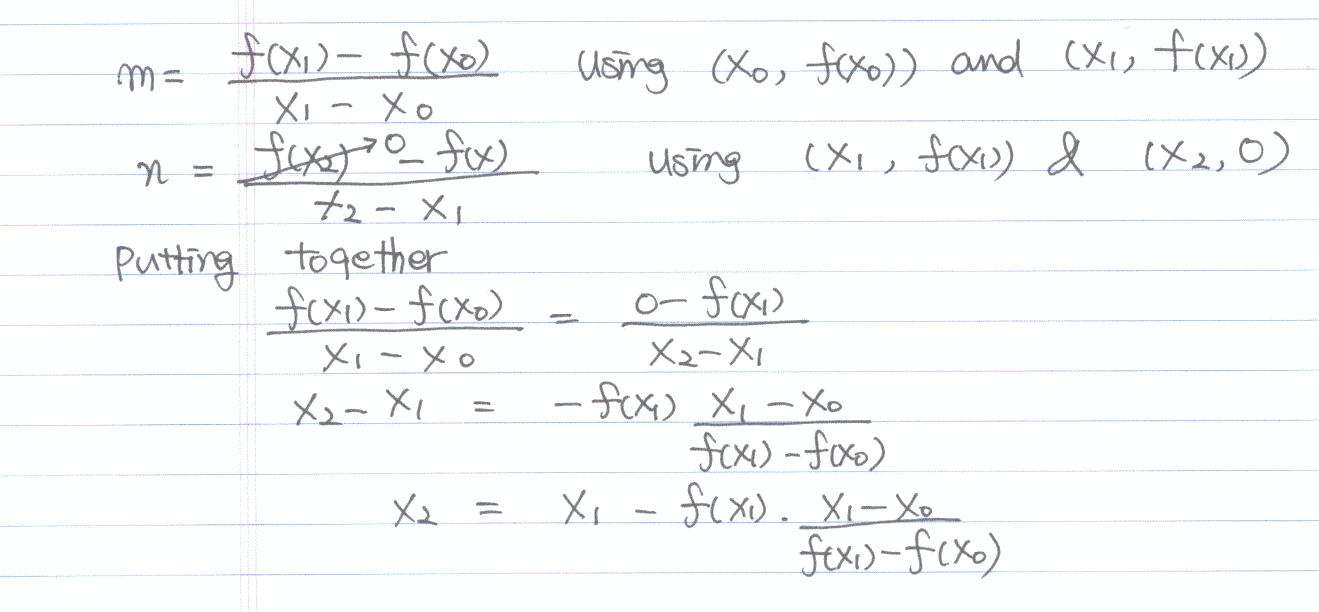 m = (f(x₁) − f(x₀)) / (x₁ − x₀) Using (x₀, f(x₀)) and (x₁, f(x₁))
n = (f(x₂)→0 − f(x)) / (x₂ − x₁) using (x₁, f(x₁)) & (x₂, 0)
Putting together
(f(x₁) − f(x₀)) / (x₁ − x₀) = (0 − f(x₁)) / (x₂ − x₁)
x₂ − x₁ = −f(x₁) (x₁ − x₀) / (f(x₁) − f(x₀))
x₂ = x₁ − f(x₁) · (x₁ − x₀) / (f(x₁) − f(x₀))